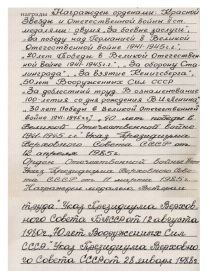 награды Награжден орденами: „Красной
Звезды" и Отечественной войны II ст.
медалями: двумя „За боевые заслуги",
„За победу над Германией в Великой
Отечественной войне 1941-1945 г.г.",
„20 лет Победы в Великой Отечествен-
ной войне 1941-1945 г.г.", „За оборону Ста-
линграда", „За взятие Кенигсберга",
„50 лет Вооруженных Сил СССР",
„За доблестный труд. В ознаменование
100-летия со дня рождения В.И. Ленина",
„30 лет Победы в Великой Отечественной
войне 1941-1945 г.г.", „40 лет победы в
Великой Отечественной войне
1941-1945 г.г." Указ Президиума
Верховного Совета СССР от
12 апреля 1985 г.
Орден Отечественной войны
Указ Президиума Верховного Сове-
та СССР от 11 марта 1985 г.
Награжден медалью „Ветеран
труда" Указ Президиума Верхов-
ного Совета БССР от 12 августа
1980 г., „70 лет Вооруженных Сил
СССР" Указ Президиума Верховно-
го Совета СССР от 28 января 1988 г.